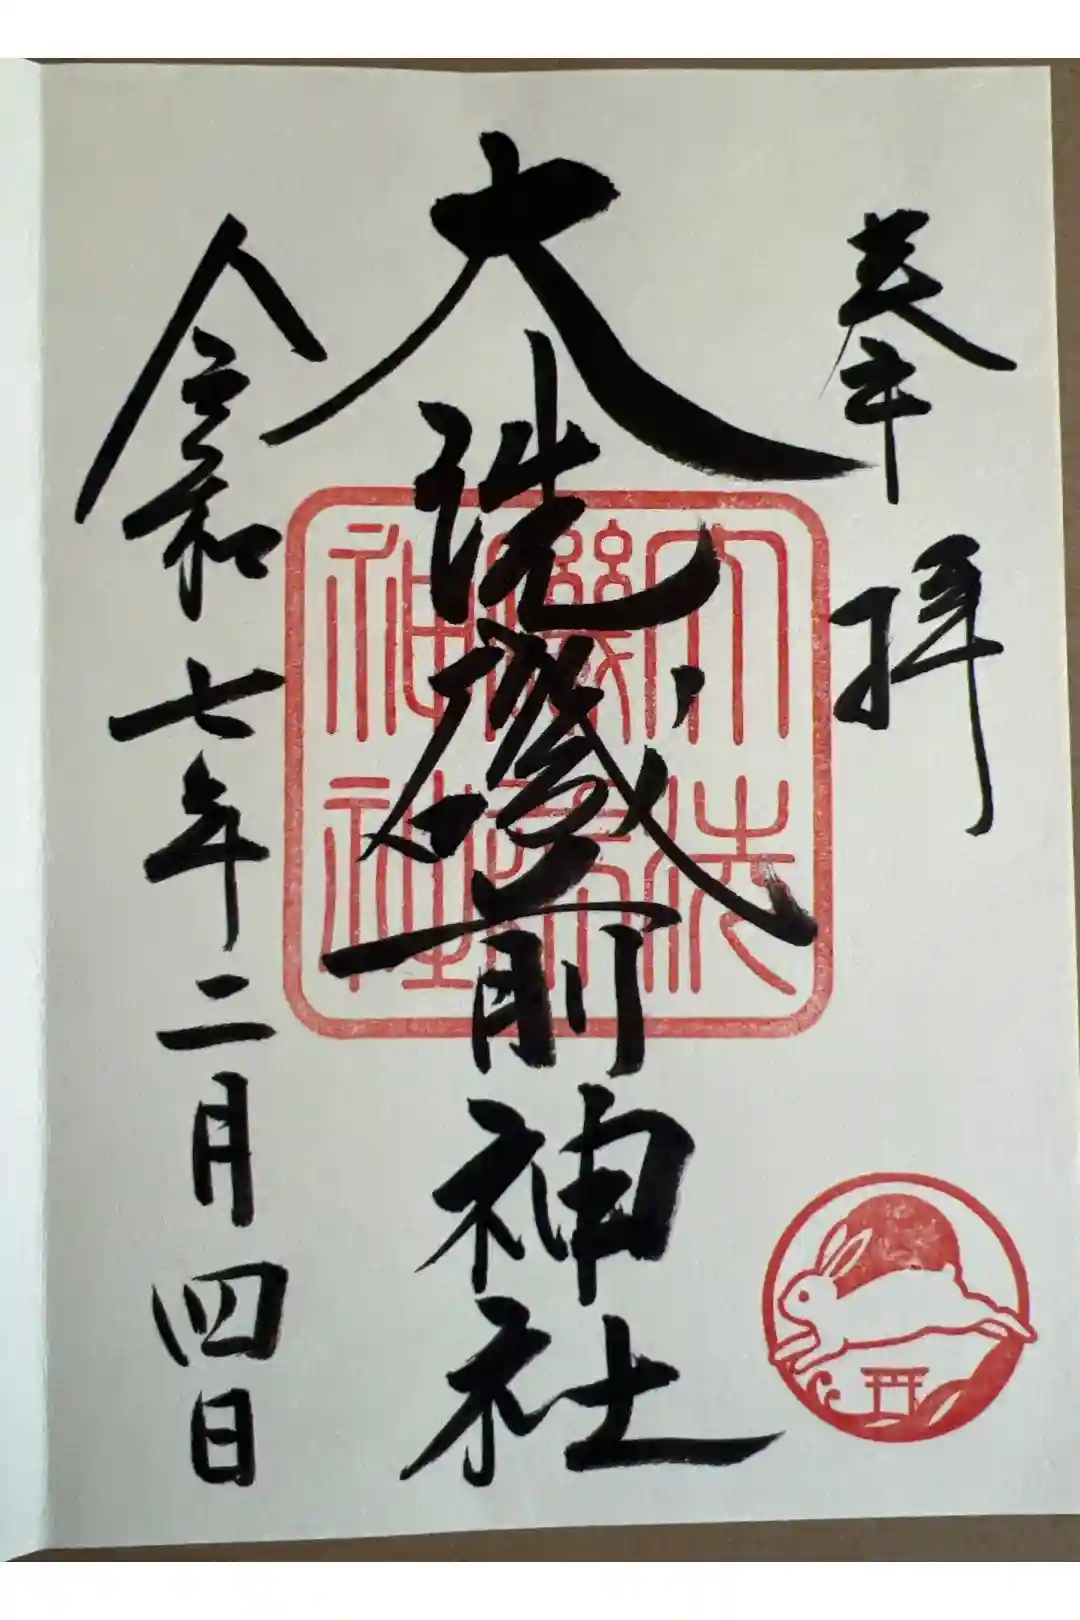 奉拝
大洗磯前神社
令和七年二月四日
大洗
磯前
神社